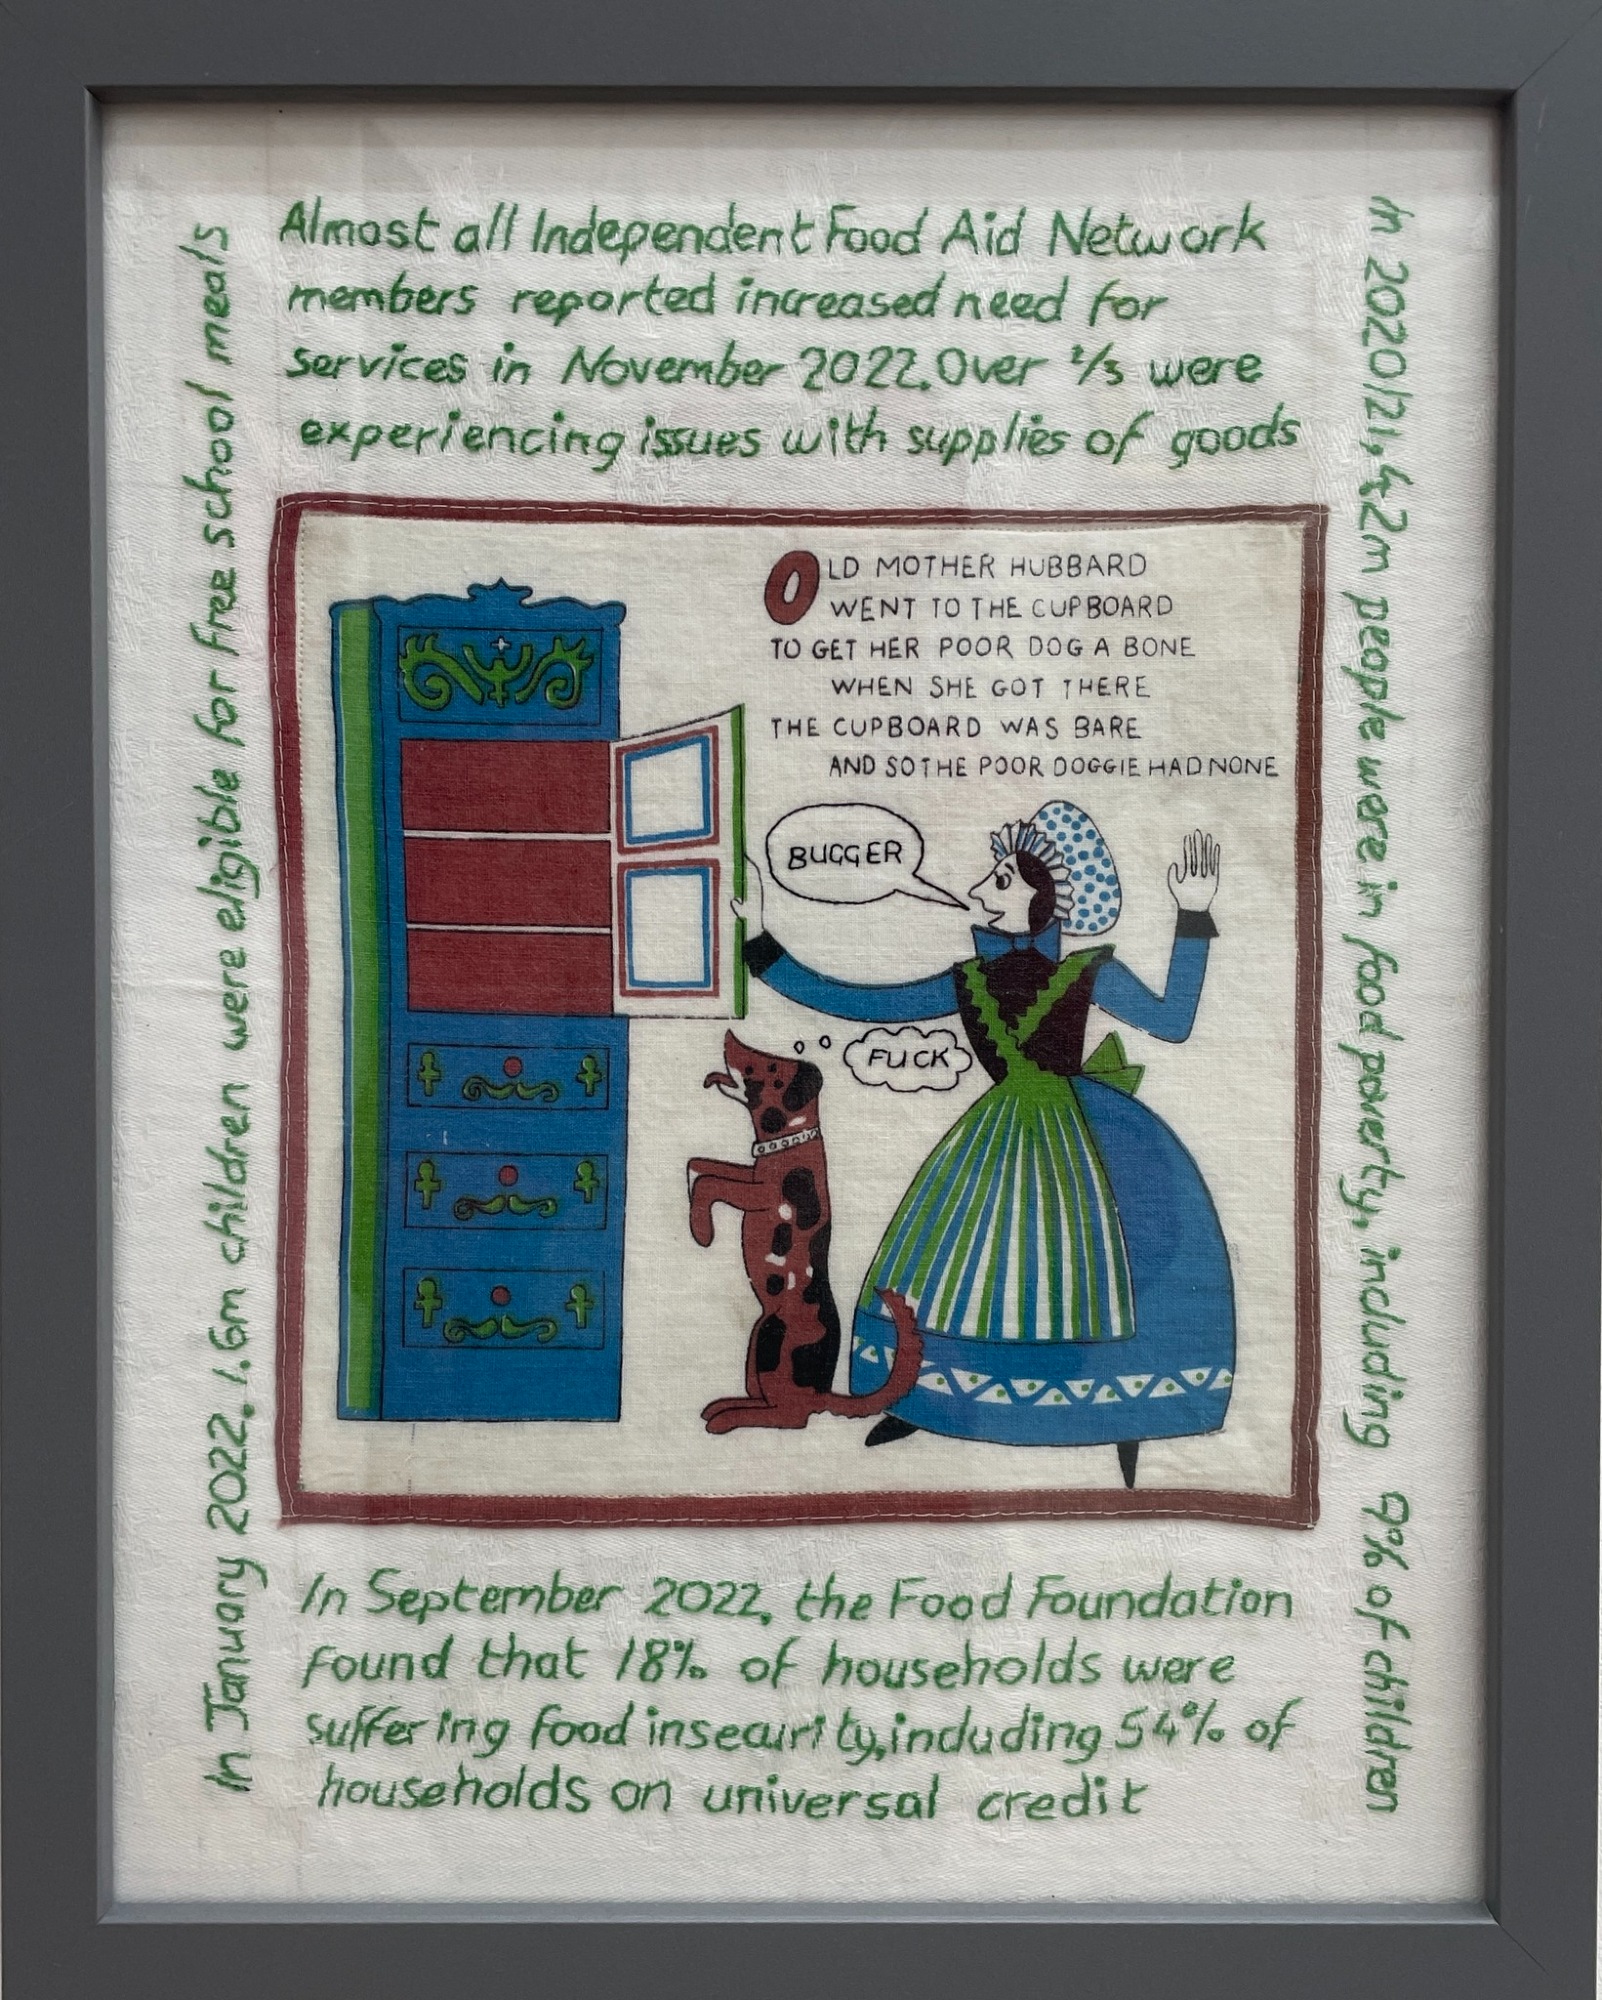 Almost all Independent Food Aid Network
members reported increased need for
services in November 2022. Over 2/3 were
experiencing issues with supplies of goods
In 2020/21, 4.2m people were in food poverty, including 9% of children
In September 2022, the Food Foundation
found that 18% of households were
suffering food insecurity, including 54% of
households on universal credit
In January 2022. 1.6m children were eligible for free school meals
OLD MOTHER HUBBARD
WENT TO THE CUPBOARD
TO GET HER POOR DOG A BONE
WHEN SHE GOT THERE
THE CUPBOARD WAS BARE
AND SO THE POOR DOGGIE HAD NONE
BUGGER
FUCK